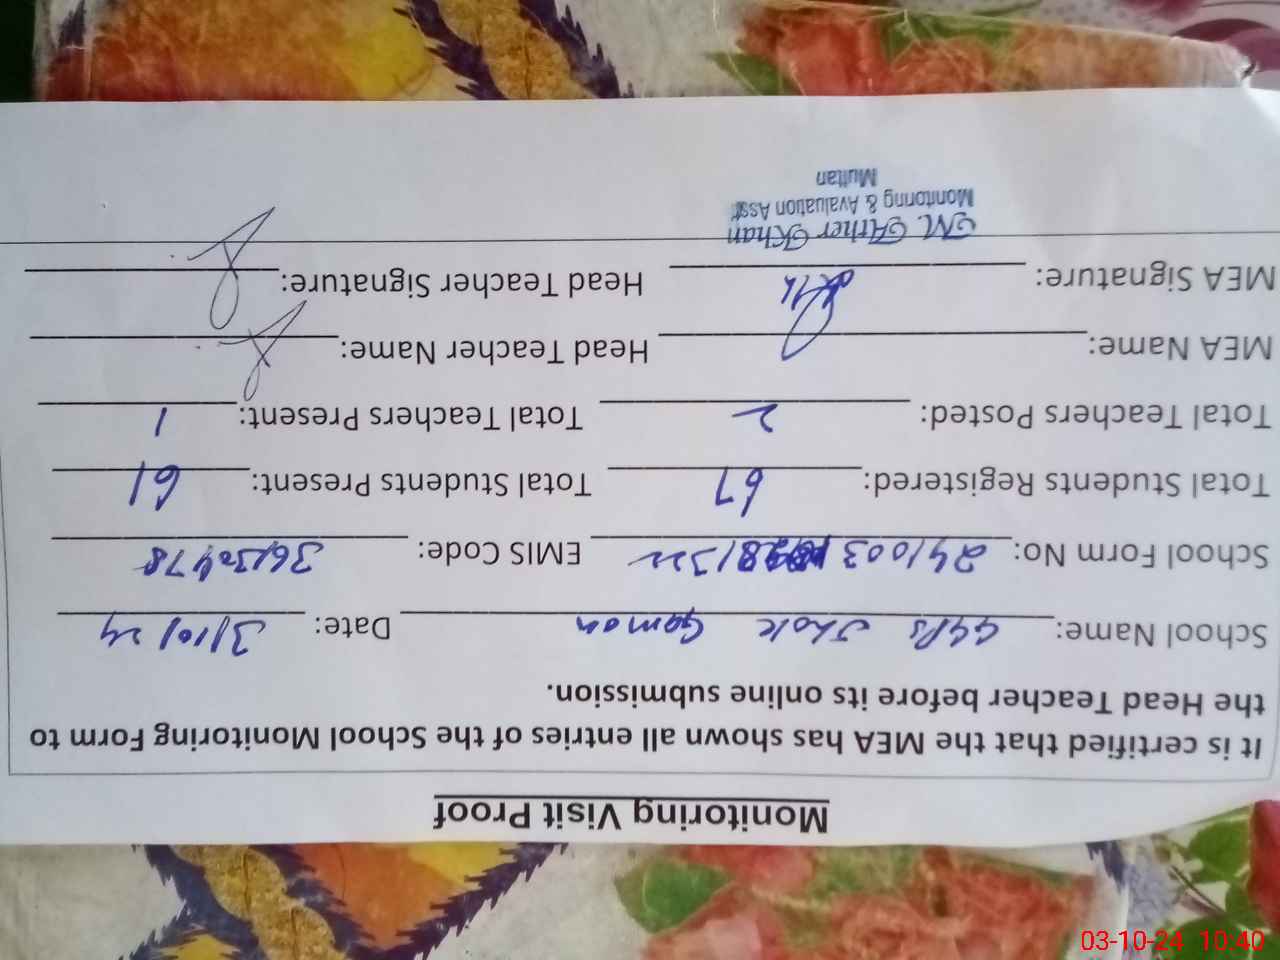 Monitoring Visit Proof
It is certified that the MEA has shown all entries of the School Monitoring Form to
the Head Teacher before its online submission.
School Name: GGPS Jhok Gaman Date: 3/10/24
School Form No: 241003 281322 EMIS Code: 36130478
Total Students Registered: 67 Total Students Present: 61
Total Teachers Posted: 2 Total Teachers Present: 1
MEA Name: Head Teacher Name:
MEA Signature: Head Teacher Signature:
M. Ather Khan
Monitoring & Avaluation Asstt
Multan
03-10-24 10:40